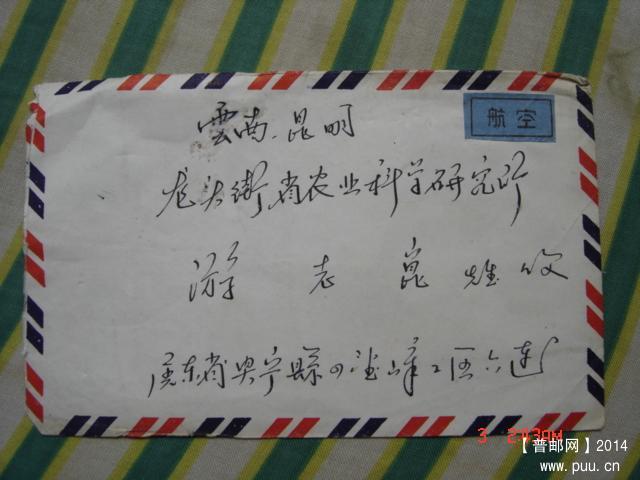 航空
雲南.昆明
龙头街省农业科学研究所
游志崑 收
广东省兴宁縣四望嶂工区六连
3 2:43AM
【普邮网】2014
www.puu.cn